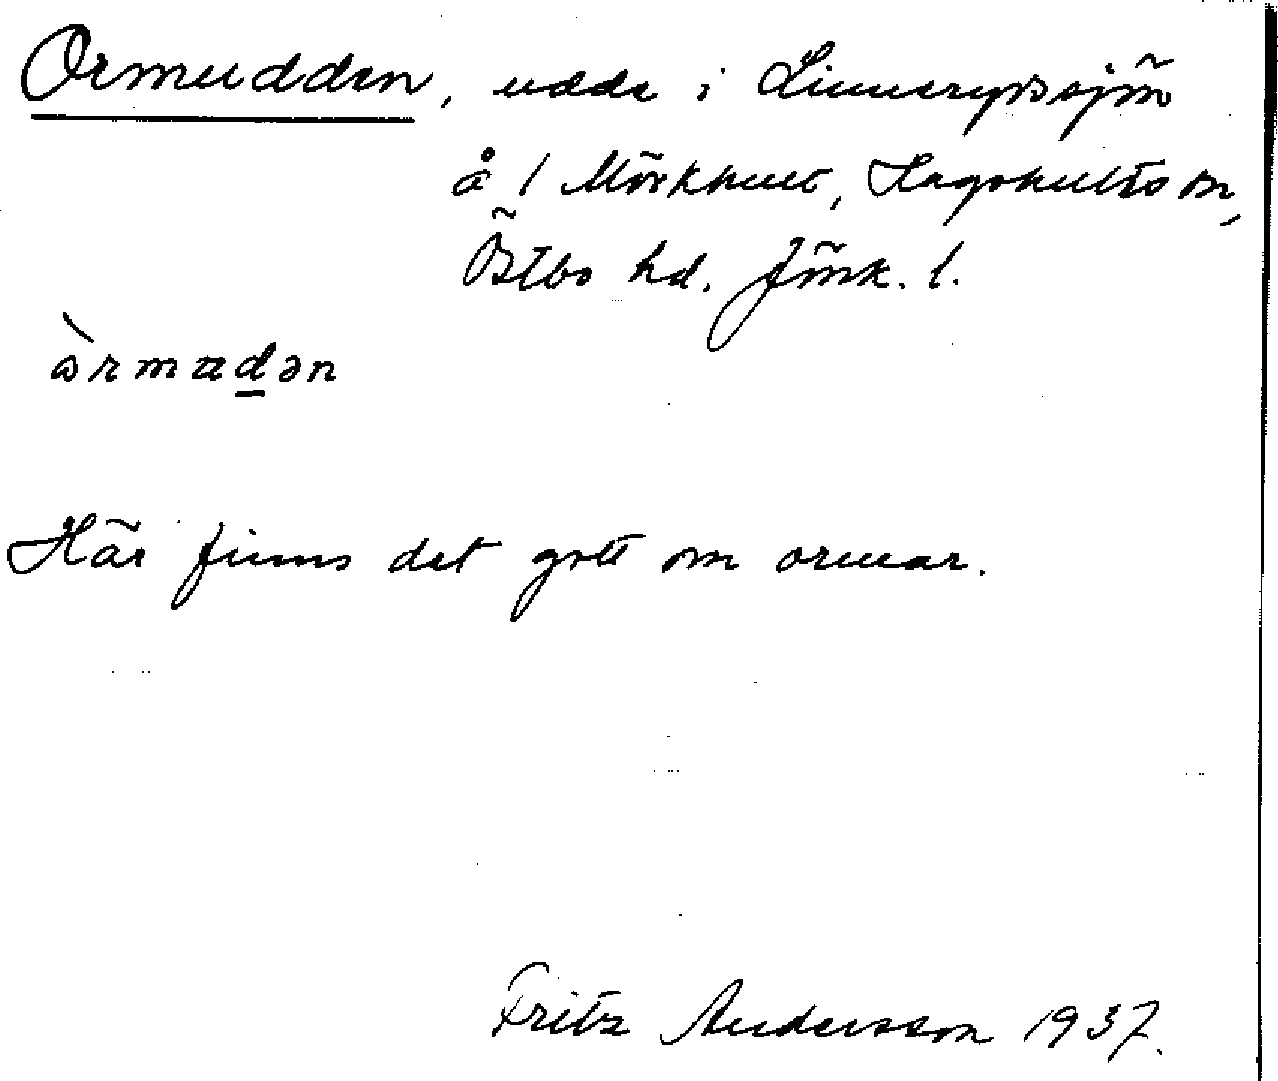 Ormudden, udde i Linnerydssjön
å 1 Mörkhult, Hagshults sn,
Östbo hd. Jönk. l.
òrmudən
Här finns det gott om ormar.
Fritz Andersson 1937.